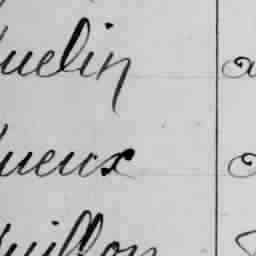 uelin a
ueux a
uillon